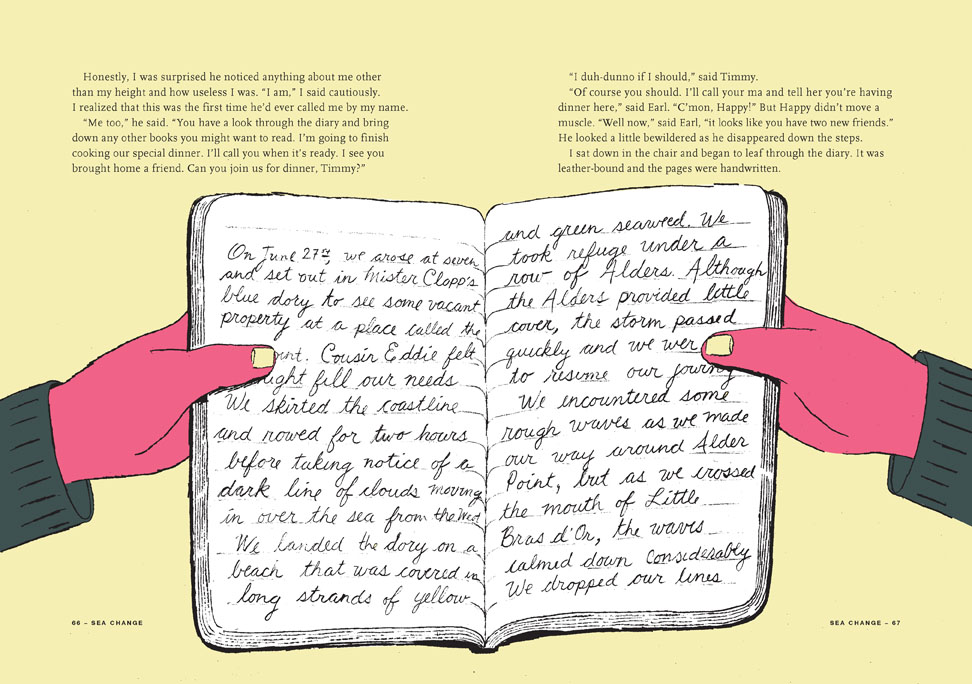 Honestly, I was surprised he noticed anything about me other
than my height and how useless I was. “I am,” I said cautiously.
I realized that this was the first time he’d ever called me by my name.
“Me too,” he said. “You have a look through the diary and bring
down any other books you might want to read. I’m going to finish
cooking our special dinner. I’ll call you when it’s ready. I see you
brought home a friend. Can you join us for dinner, Timmy?”
“I duh-dunno if I should,” said Timmy.
“Of course you should. I’ll call your ma and tell her you’re having
dinner here,” said Earl. “C’mon, Happy!” But Happy didn’t move a
muscle. “Well now,” said Earl, “it looks like you have two new friends.”
He looked a little bewildered as he disappeared down the steps.
I sat down in the chair and began to leaf through the diary. It was
leather-bound and the pages were handwritten.
On June 27th, we arose at seven
and set out in Mister Clopp's
blue dory to see some vacant
property at a place called the
Cousin Eddie felt
fill our needs
We skirted the coastline
and rowed for two hours
before taking notice of a
dark line of clouds moving
in over the sea from the West
We landed the dory on a
beach that was covered in
long strands of yellow
and green seaweed. We
took refuge under a
row of Alders. Although
the Alders provided little
cover, the storm passed
quickly and we wer
to resume our journey
We encountered some
rough waves as we made
our way around Alder
Point, but as we crossed
the mouth of Little
Bras d'Or, the waves
calmed down considerably
We dropped our lines
66 – SEA CHANGE
SEA CHANGE – 67